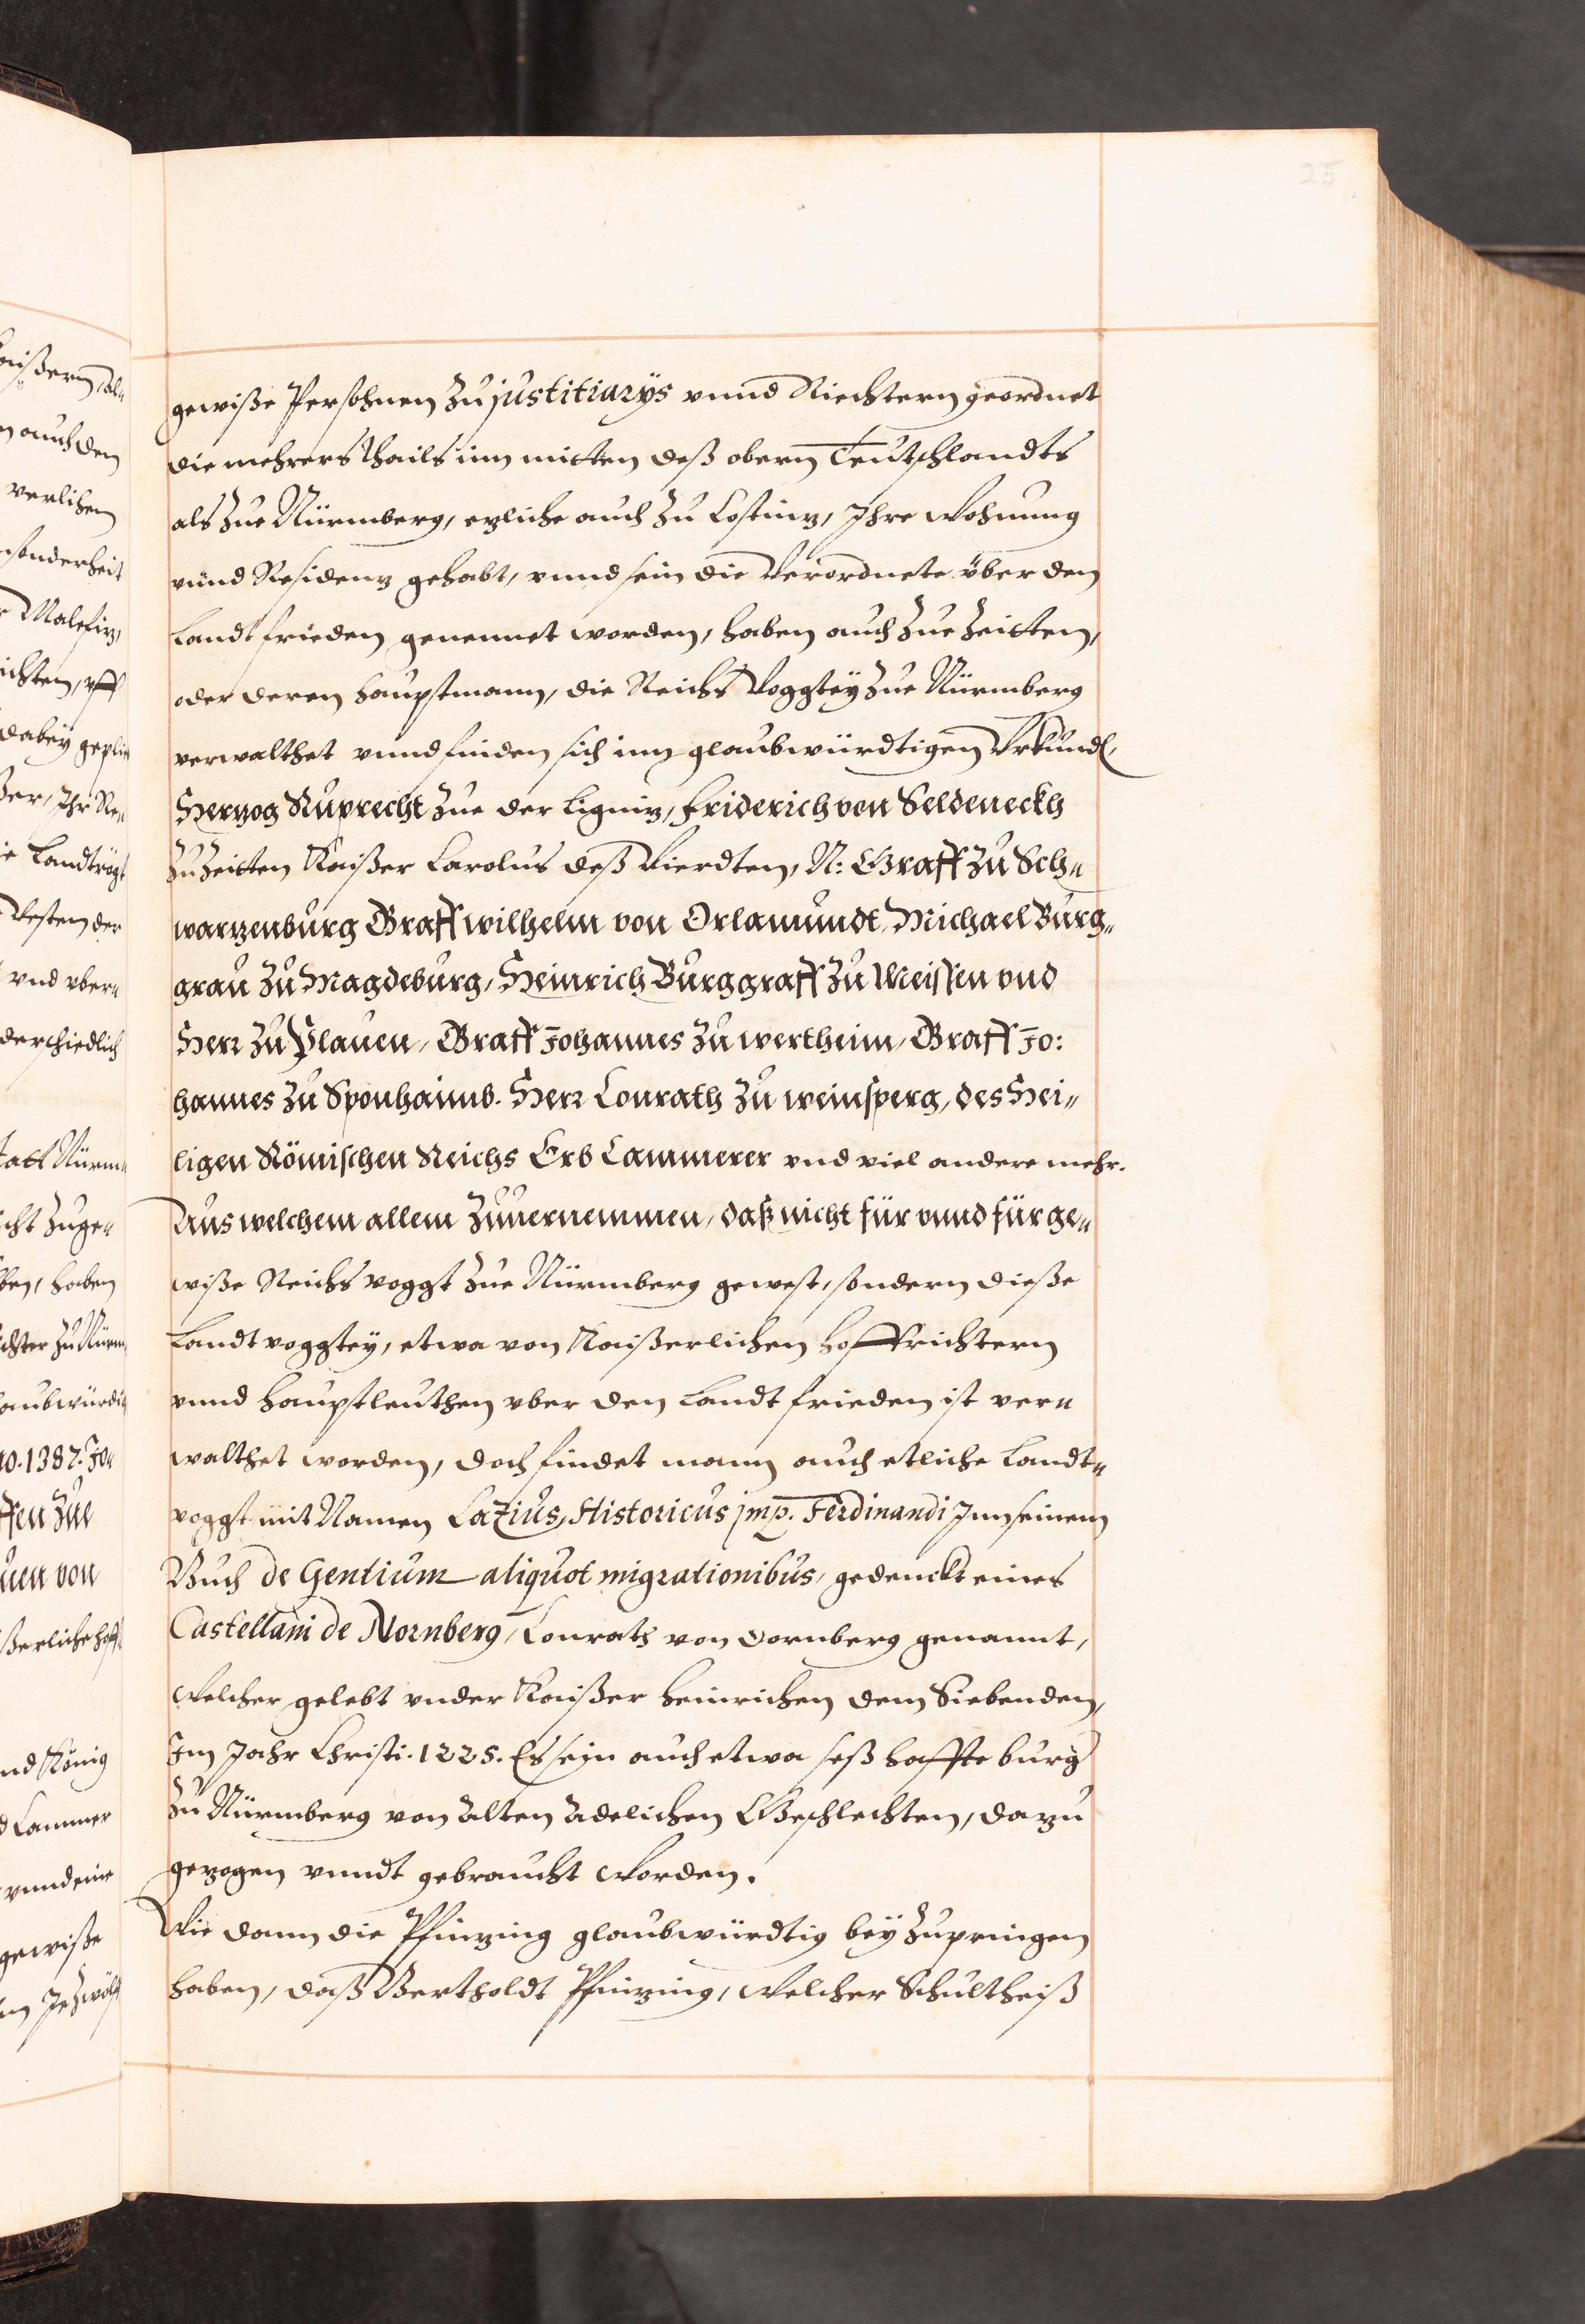 25
gewiße Persohnen zu justitiarys vnnd Riechtern geordnet
die mehrers thails inn mitten deß obern Teutschlandts
als zue Nürmberg, ezliche auch zu Costniz, Ihre Wohnung
vnnd Residenz gehabt, vnnd sein die Verordnete über den
Landtfrieden genennet worden, haben auch zue Zeitten,
oder deren Hauptmann, die Reichs Voggtey zue Nürmberg
verwalthet vnnd finden sich inn glaubwürdtigen Vrkundt,
Herzog Ruprecht zue der Ligniz, Friderich von Seldeneckh
zu Zeitten Kaißer Carolus deß Vierdten, N: Graff zu Sch„
warzenburg Graff wilhelm von Orlamundt, Michael Burg„
grau zu Magdeburg, Heinrich Burggraff zu Meissen vnd
Herr zu Plauen, Graff Johannes zu wertheim, Graff Jo:
hannes zu Sponhaimb. Herr Conrath zu weinsperg, des Hei„
ligen Römischen Reichs Erb Cammerer vnd viel andere mehr.
Aus welchem allem zuuernemmen, daß nicht für vnnd für ge„
wiße Reichs voggt zue Nürmberg gewest, sondern dieße
Landtvoggtey, etwa von Kaißerlichen Hoffrichtern
vnnd Hauptleuthen vber den Landtfrieden ist ver„
walthet worden, doch findet mann auch etliche Landt„
voggt mit Namen Lazius, Historicus jmp. Ferdinandi Inn seinem
Buch de Gentium aliquot migrationibus, gedenckt eines
Castellani de Nornberg, Conrath von Dornberg genannt,
Welcher gelebt vnder Kaißer Heinrichen dem Siebenden,
Im Jahr Christi. 1225. Es sein auch etwa seßhaffte burg
zu Nürmberg von alten adelichen Geschlechten, dazu
gezogen vnndt gebraucht worden.
Wie dann die Pfinzing glaubwürdtig bey zupringen
haben, daß Bertholdt Pfinzing, Welcher Schultheiß